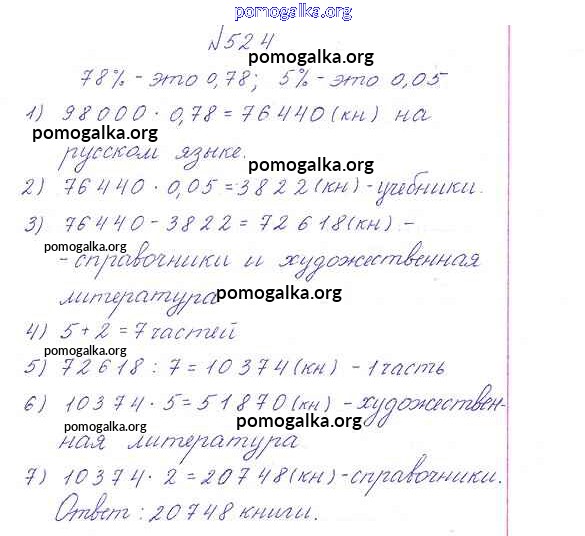 pomogalka.org
№524
pomogalka.org
78% - это 0,78; 5% - это 0,05
1) 98000 · 0,78 = 76440 (кн) на
pomogalka.org
русском языке.
pomogalka.org
2) 76440 · 0,05 = 3822 (кн) - учебники.
3) 76440 - 3822 = 72618 (кн) -
pomogalka.org
- справочники и художественная
литература
pomogalka.org
4) 5 + 2 = 7 частей
pomogalka.org
5) 72618 : 7 = 10374 (кн) - 1 часть
6) 10374 · 5 = 51870 (кн) - художествен-
pomogalka.org
pomogalka.org
ная литература
7) 10374 · 2 = 20748 (кн) - справочники.
Ответ: 20748 книги.